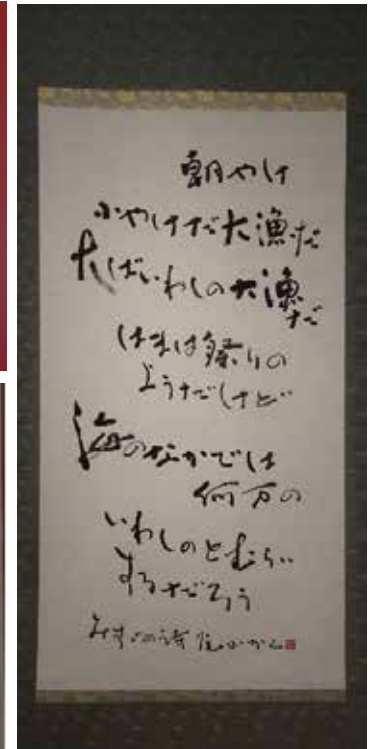 朝やけ
小やけだ大漁だ
大ばいわしの大漁だ
はまは祭りの
ようだけど
海のなかでは
何万の
いわしのとむらい
するだろう
みすゞの詩